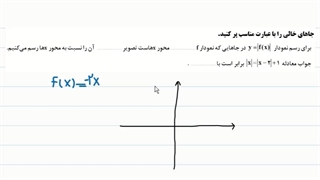 جاهای خالی را با عبارت مناسب پر کنید.
برای رسم نمودار y=|f(x)| در جاهایی که نمودار f محور xهاست تصویر آن را نسبت به محور xها رسم می‌کنیم.
جواب معادله |x|=|x-2|+1 برابر است با .
f(x)=-2x